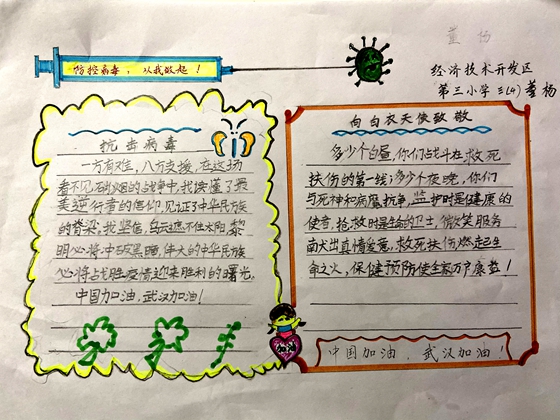 董杨
防控病毒，从我做起！
经济技术开发区
第三小学三(4) 董杨
抗击病毒
一方有难，八方支援，在这场
看不见硝烟的战争中，我读懂了最
美逆行者的信仰，见证了中华民族
的脊梁，我坚信，乌云遮不住太阳，黎
明必将冲破黑暗，伟大的中华民族
必将战胜疫情迎来胜利的曙光。
中国加油，武汉加油！
向白衣天使致敬
多少个白昼，你们战斗在救死
扶伤的第一线；多少个夜晚，你们
与死神和病魔抗争，监护时是健康的
使者，抢救时是生命的卫士，微笑服务
献出真情爱意，救死扶伤燃起生
命之火，保健预防使万户康益！
中国加油，武汉加油！